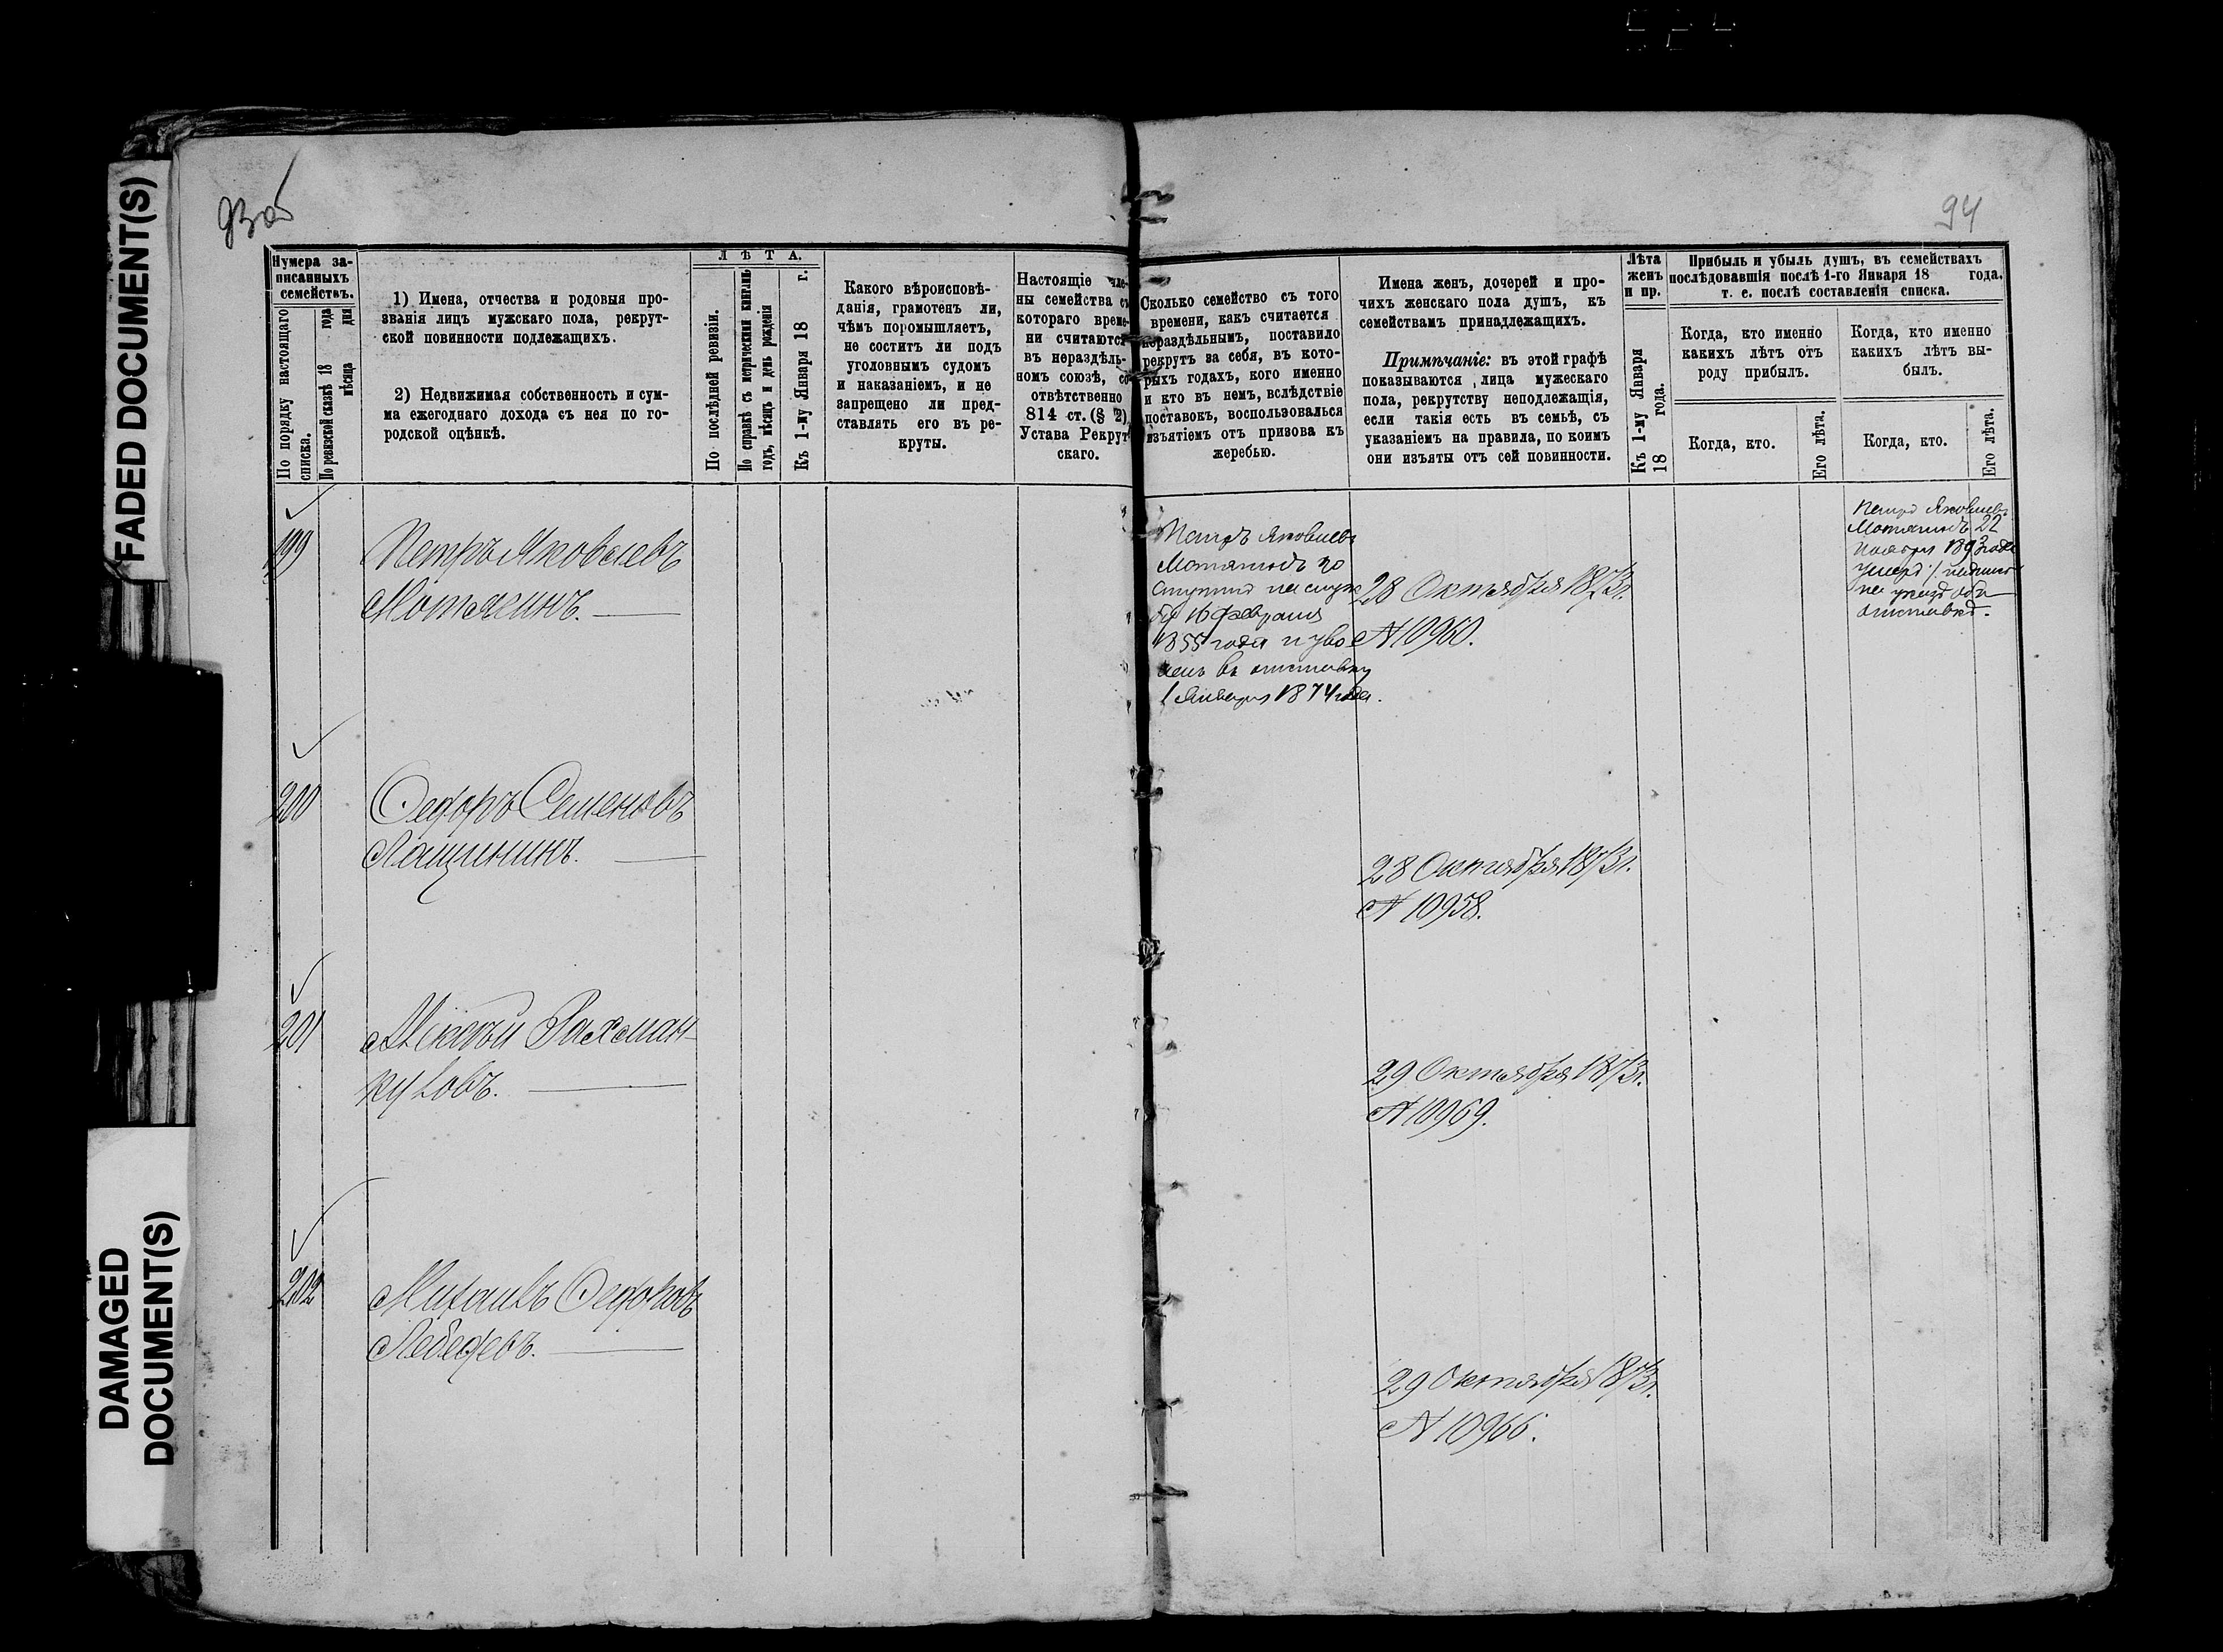 FADED DOCUMENT(S)
DAMAGED
DOCUMENT(S)
93об
94
Нумера за-
писанныхъ
семействъ.
По порядку настоящаго
списка.
По ревизской сказкѣ 18 года
мѣсяца дня
1) Имена, отчества и родовыя про-
званія лицъ мужскаго пола, рекрут-
ской повинности подлежащихъ.
2) Недвижимая собственность и сум-
ма ежегоднаго дохода съ нея по го-
родской оцѣнкѣ.
ЛѢТА.
По послѣдней ревизіи.
По справкѣ съ метрическими книгами
годъ, мѣсяцъ и день рожденія
Къ 1-му Января 18 г.
Какого вѣроисповѣ-
данія, грамотенъ ли,
чѣмъ поромышляетъ,
не соститъ ли подъ
уголовнымъ судомъ
и наказаніемъ, и не
запрещено ли пред-
ставлять его въ ре-
круты.
Настоящіе чле-
ны семейства съ
котораго време-
ни считаются
въ нераздѣль-
номъ союзѣ, со-
отвѣтственно
814 ст. (§ 2)
Устава Рекрут-
скаго.
Сколько семейство съ того
времени, какъ считается
нераздѣльнымъ, поставило
рекрутъ за себя, въ кото-
рыхъ годахъ, кого именно
и кто въ немъ, вслѣдствіе
поставокъ, воспользовался
изъятіемъ отъ призова къ
жеребью.
Имена женъ, дочерей и про-
чихъ женскаго пола душъ, къ
семействамъ принадлежащихъ.
Примѣчаніе: въ этой графѣ
показываются лица мужескаго
пола, рекрутству неподлежащія,
если такія есть въ семьѣ, съ
указаніемъ на правила, по коимъ
они изъяты отъ сей повинности.
Лѣта
женъ
и пр.
Къ 1-му Января
18 года.
Прибыль и убыль душъ, въ семействахъ
послѣдовавшія послѣ 1-го Января 18 года.
т. е. послѣ составленія списка.
Когда, кто именно
какихъ лѣтъ отъ
роду прибылъ.
Когда, кто.
Его лѣта.
Когда, кто именно
какихъ лѣтъ вы-
былъ.
Когда, кто.
Его лѣта.
199
Петръ Яковлевъ
Мотягинъ.
Петръ Яковлевъ
по
ступилъ на служ
бу 16 февраля
1855 года и уво
ленъ въ отставку
1 Января 1874 года.
28 Октября 1873 г.
№ 10960.
Петръ Яковлевъ
22
Ноября 1893 года
умеръ
на указѣ объ
отставкѣ.
200
Федоръ Семеновъ
Лащининъ.
28 Октября 1873 г.
№ 10958.
201
Рахман-
куловъ.
29 Октября 1873 г.
№ 10969.
202
Михаилъ Федоровъ
Лебедевъ.
29 Октября 1873 г.
№ 10966.